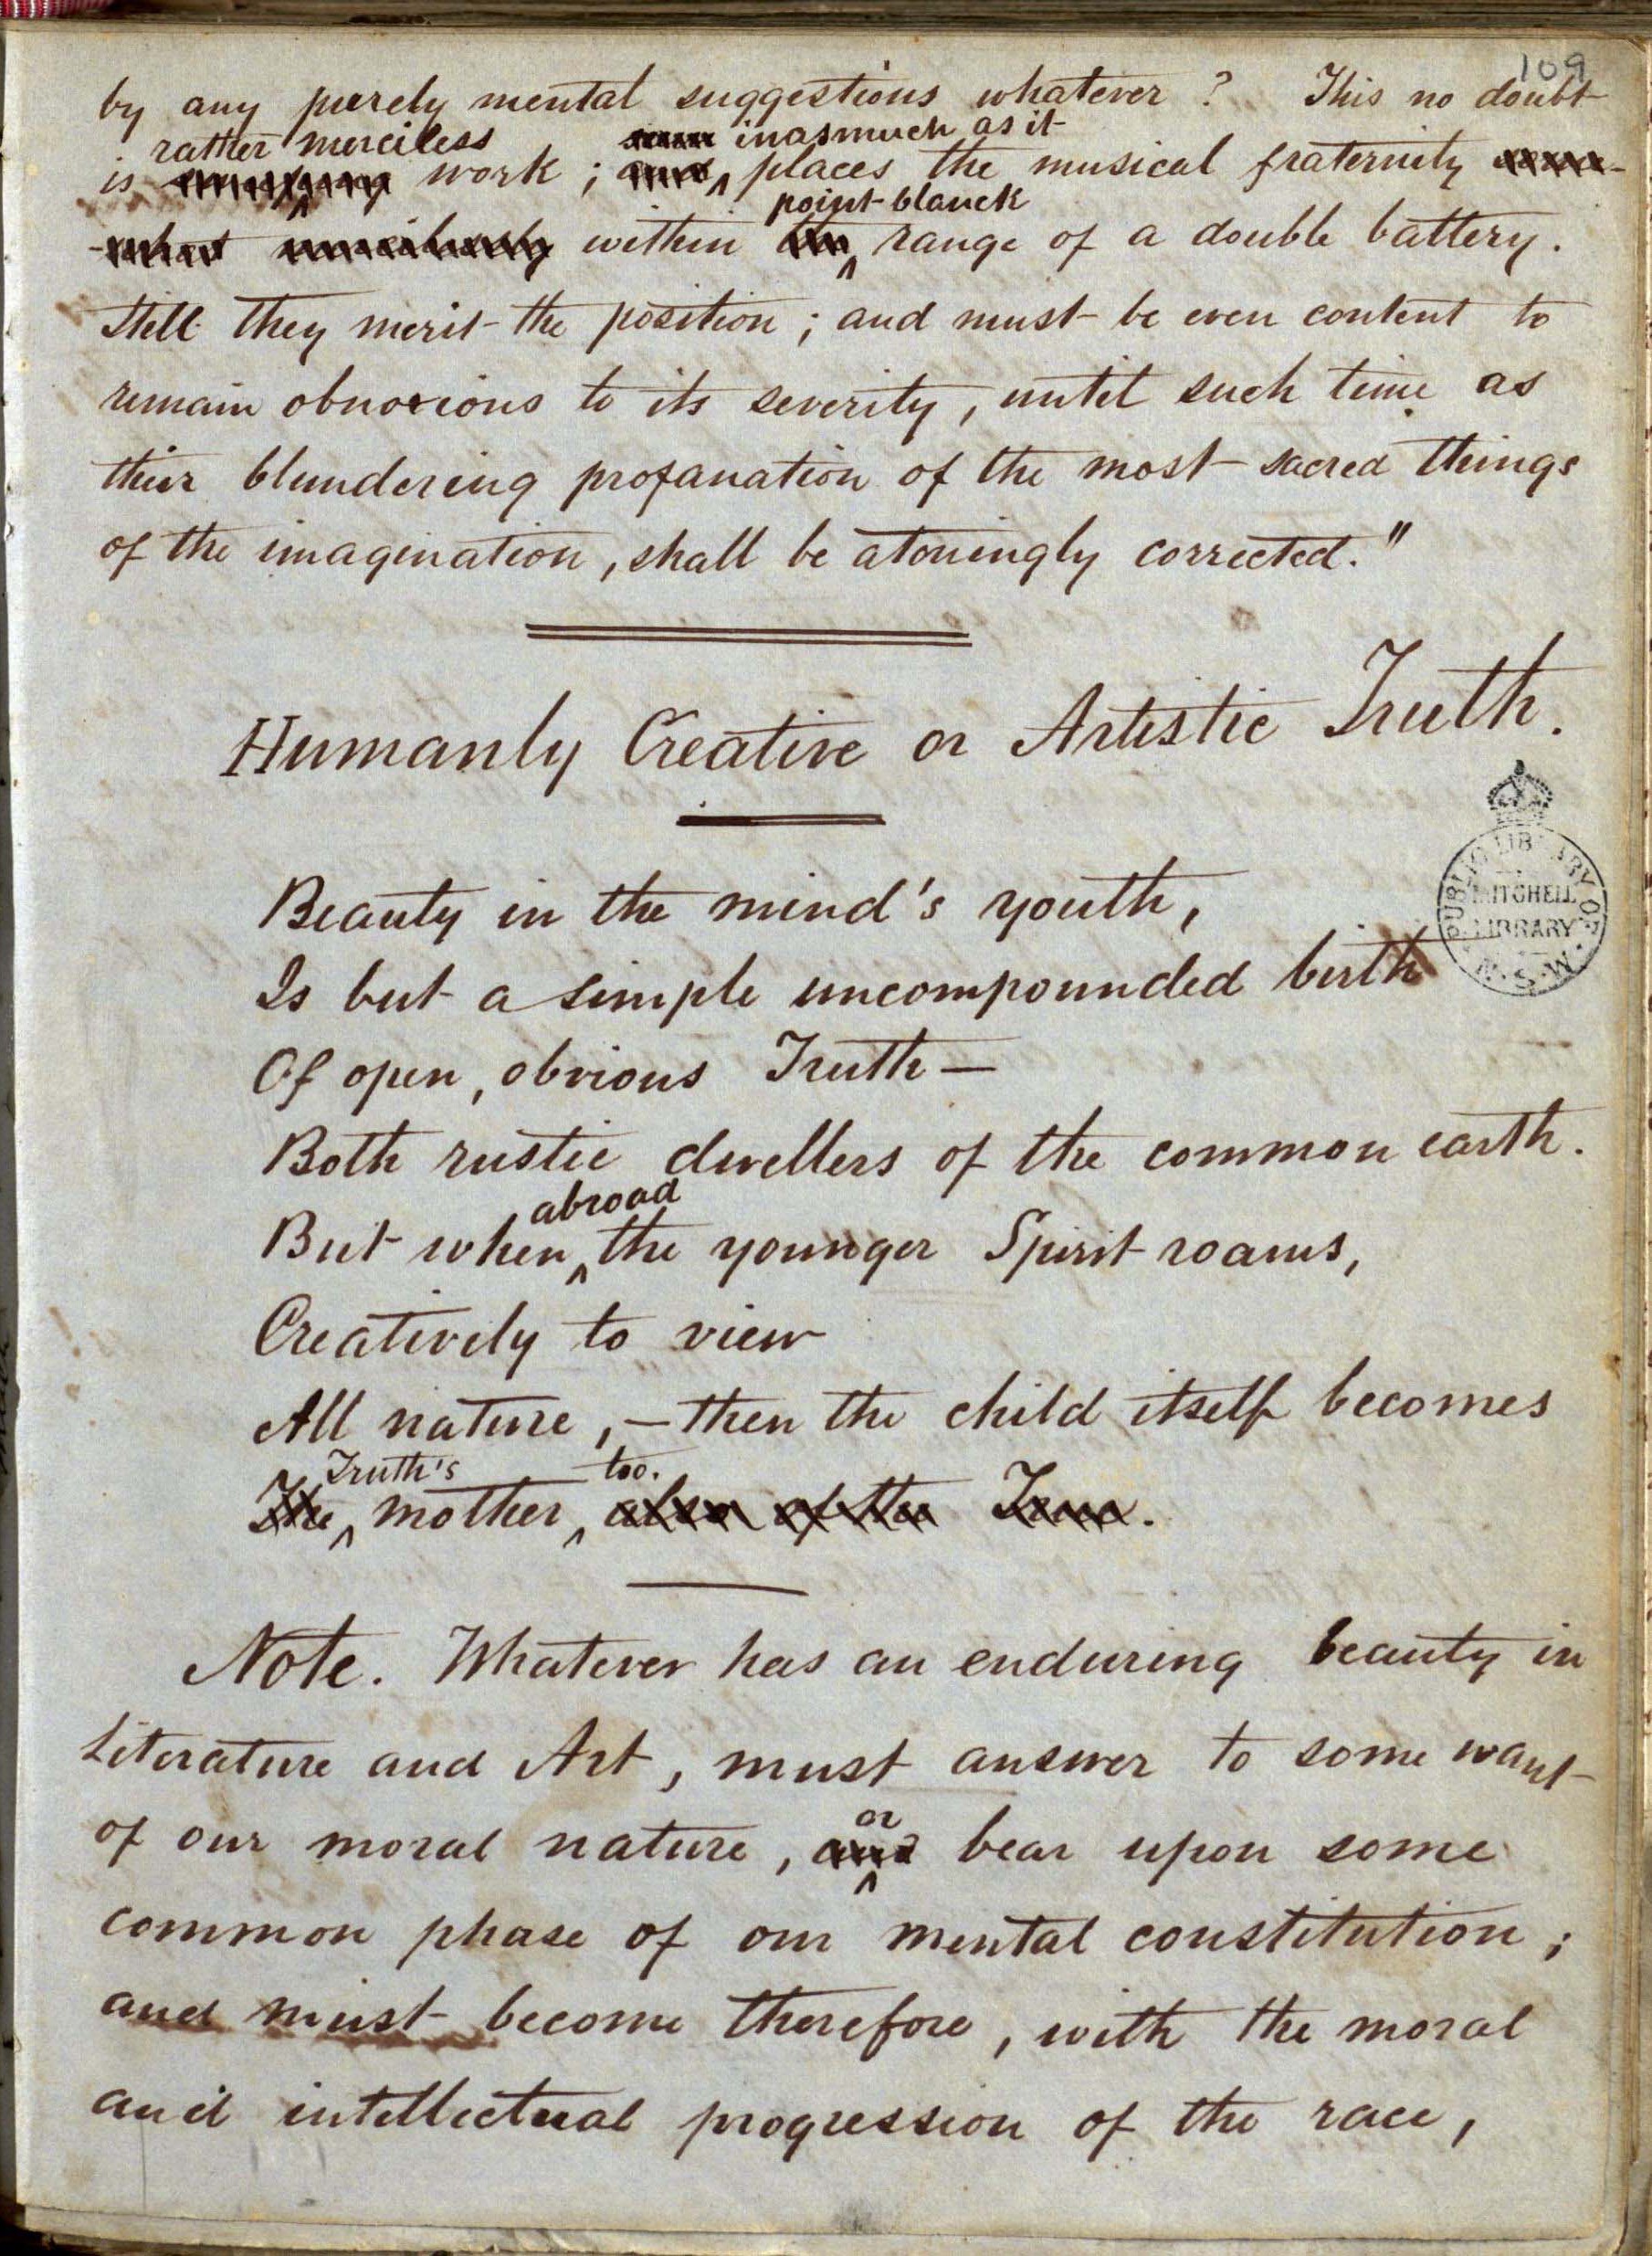 109
by any purely mental suggestions whatever? This no doubt
rather merciless inasmuch as it
is work; places the musical fraternity
point-blanck
within range of a double battery.
Still they merit the position; and must be even content to
remain obnoxious to its severity, until such time as
their blundering profanation of the most sacred things
of the imagination, shall be atoningly corrected."
Humanly Creative or Artistic Truth.
Beauty in the mind's youth,
Is but a simple uncompounded birth
Of open, obvious Truth—
Both rustic dwellers of the common earth.
abroad
But when the younger Spirit roams,
Creatively to view
All nature,—then the child itself becomes
Truth's too.
The mother, also of the True.
Note. Whatever has an enduring beauty in
Literature and Art, must answer to some want
or
of our moral nature, and bear upon some
common phase of our mental constitution;
and must become therefore, with the moral
and intellectual progression of the race,
PUBLIC LIBRARY OF
MITCHELL
LIBRARY
N.S.W.